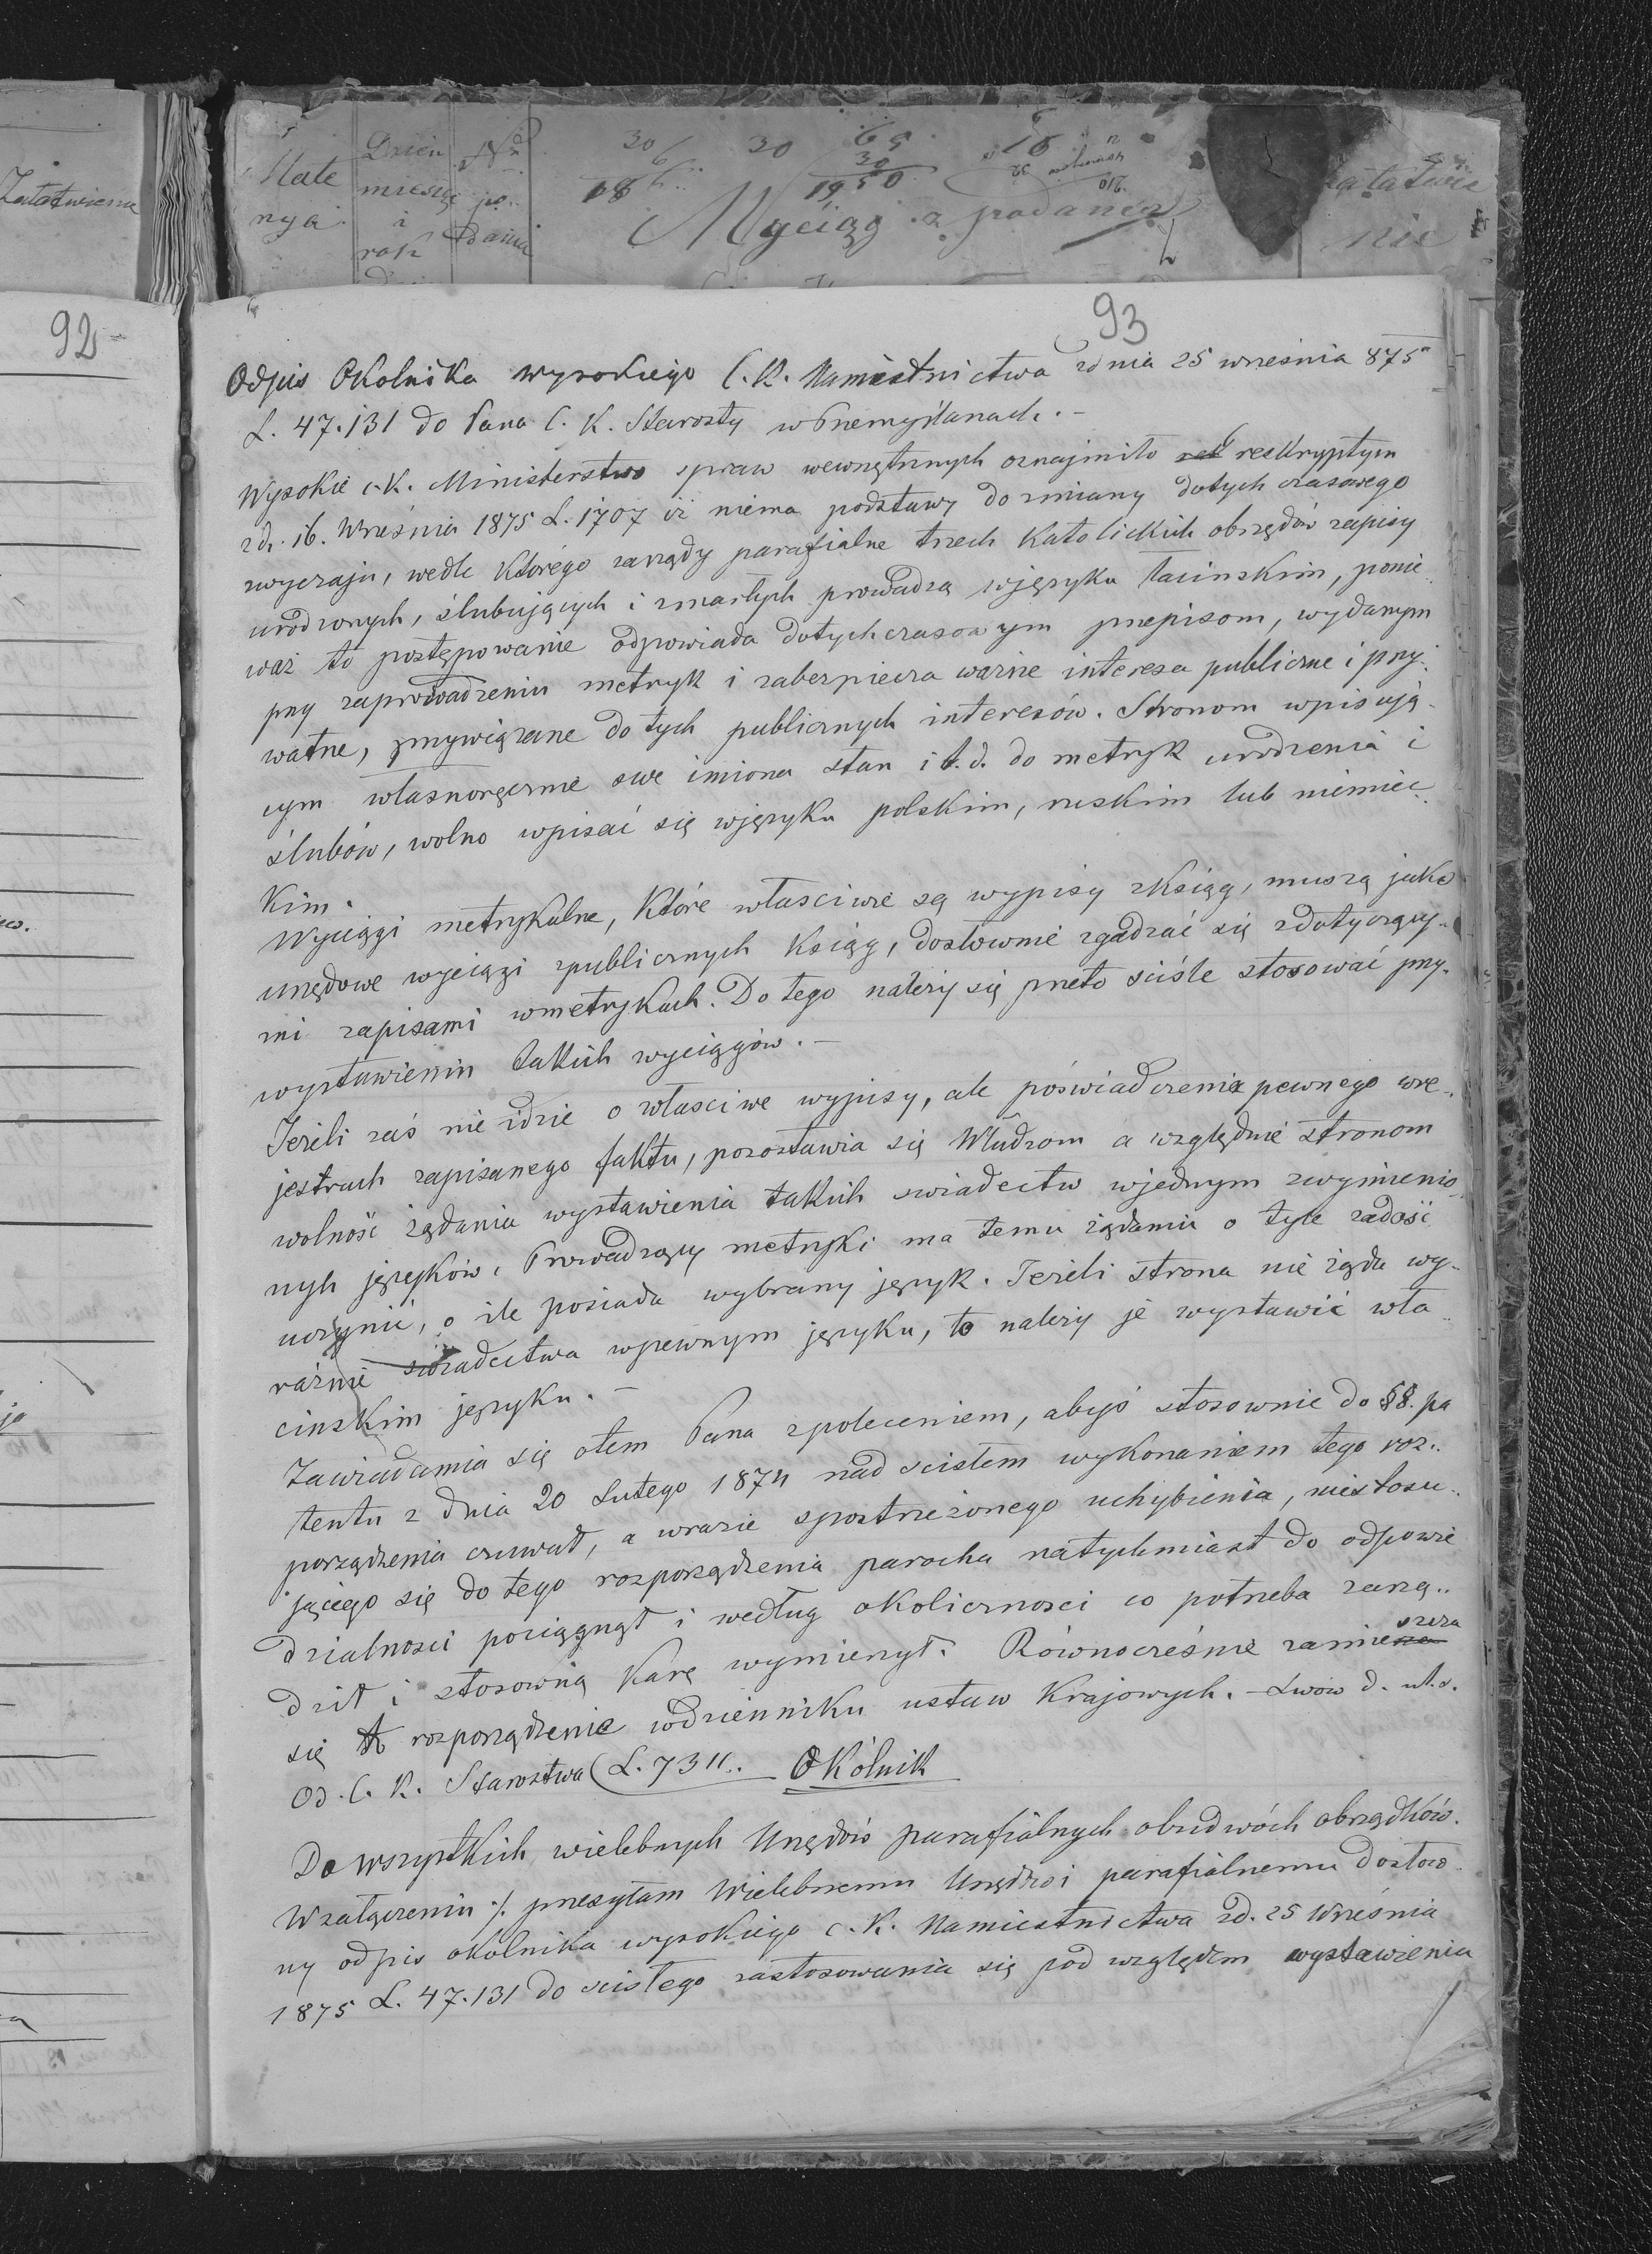 Załatwienie
92
Mate
ryja
Dzień
miesiąc
i
rok
po
dania
30
6
186
30
65
30
1950
Wyciąg z podanea
załatwie
nie
93
Odpis Okolnika wysokiego C.K. Namiestnictwa zdnia 25 września 875
L. 47.131 do Pana C. K. Starosty w Przemyślanach. -
Wysokie c.K. Ministerstwo spraw wewnętrznych oznajmiło reskryptym
zd. 16. Września 1875 L. 1707 iż niema podstawy do zmiany dotych czasowego
zwyczaju, wedle Którego zarządy parafialne trzech Katolickich obrzędów zapisy
urodzonych, ślubujących i zmarłych prowadzą wjęzyku łacinskim, ponie
waż to postępowanie odpowiada dotychczasowym przepisom, wydanym
przy zaprowadzeniu metryk i zabezpiecza ważne interesa publiczne i pry
watne, przywiązane do tych publicznych interesów. Stronom wpisują
cym własnoręcznie swe imiona stan i t.d. do metryk urodzenia i
ślubów, wolno wpisać się wjęzyku polskim, ruskim lub niemiec
Kim.
Wyciągi metrykalne, Które właściwie są wypisy zKsiąg, muszą jako
urzędowe wyciągi zpublicznych Ksiąg, dosłownie zgadzać się zdotyczący-
mi zapisami wmetrykach. Do tego należy się przeto sciśle stosować przy
wystawieniu takich wyciągów. -
Jeżeli zaś nie idzie o właściwe wypisy, ale poświadczenie pewnego wre-
jestrach zapisanego faktu, pozostawia się Władzom a względnie stronom
wolność żądania wystawienia takich swiadectw wjednym zwymienio
nych języków. Prowadzący metryki ma temu żądaniu o tyle zadość
uczynić, o ile posiada wybrany język. Jeżeli strona nie żąda wy-
raźnie swiadectwa wpewnym języku, to należy je wystawić wła
cinskim języku. -
Zawiadamia się otem Pana zpoleceniem, abyś stosownie do §8. pa
tentu z dnia 20 Lutego 1874 nad scisłem wykonaniem tego roz..
porządzenia czuwał, a wrazie spostrzeżonego uchybienia, niestosu..
jącego się do tego rozporządzenia parocha natychmiast do odpowie
dzialnosci pociągnął i według okolicznosci co potrzeba zarzą..
dził i stosowną Karę wymierzył. Równocześnie zamieszcza
się to rozporządzenie wdzienniku ustaw Krajowych. - Lwów d. ut.s.
Od. C. K. Starostwa L. 7311. Okólnik
Do wszystkich wielebnych Urzędów parafialnych obudwóch obrządków.
Wzałączeniu ./. przesyłam Wielebnemu Urzędowi parafialnemu dosłow
ny odpis okólnika wysokiego c.K. Namiestnictwa zd. 25 Wrzesnia
1875 L. 47.131 do scisłego zastosowania się pod względem wystawienia